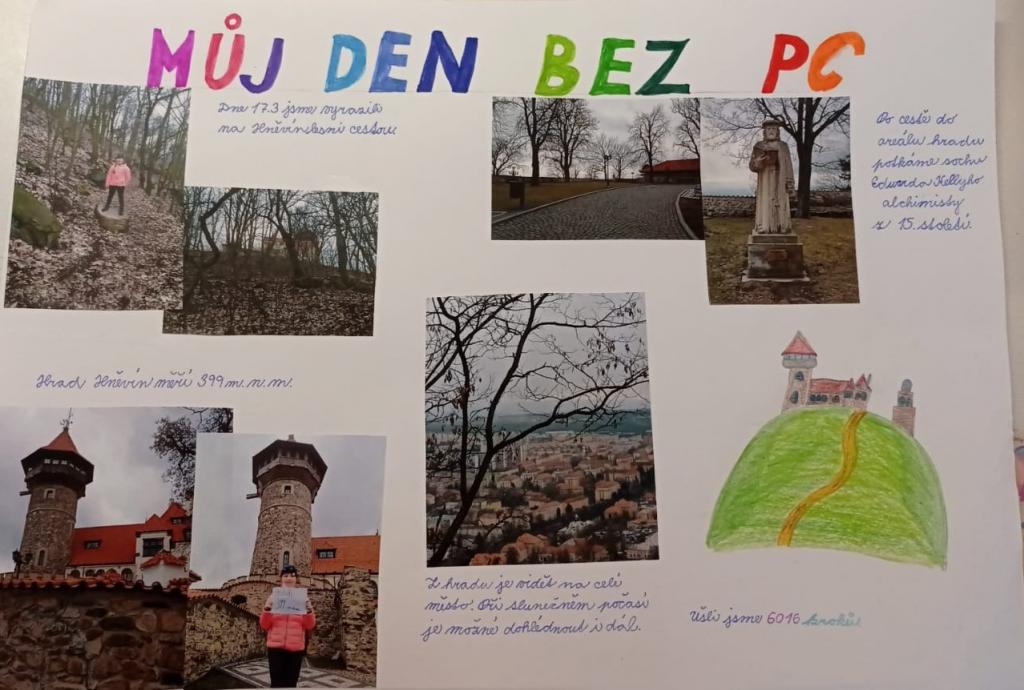 MŮJ DEN BEZ PC
Dne 17.3 jsme vyrazili
na Hněvín lesní cestou
Po cestě do
areálu hradu
potkáme sochu
Edwarda Kellyho
alchimisty
z 15. století.
Hrad Hněvín měří 399 m.n.m.
Z hradu je vidět na celé
město. Při slunečném počasí
je možné dohlédnout i dál.
Ušli jsme 6016 kroků!